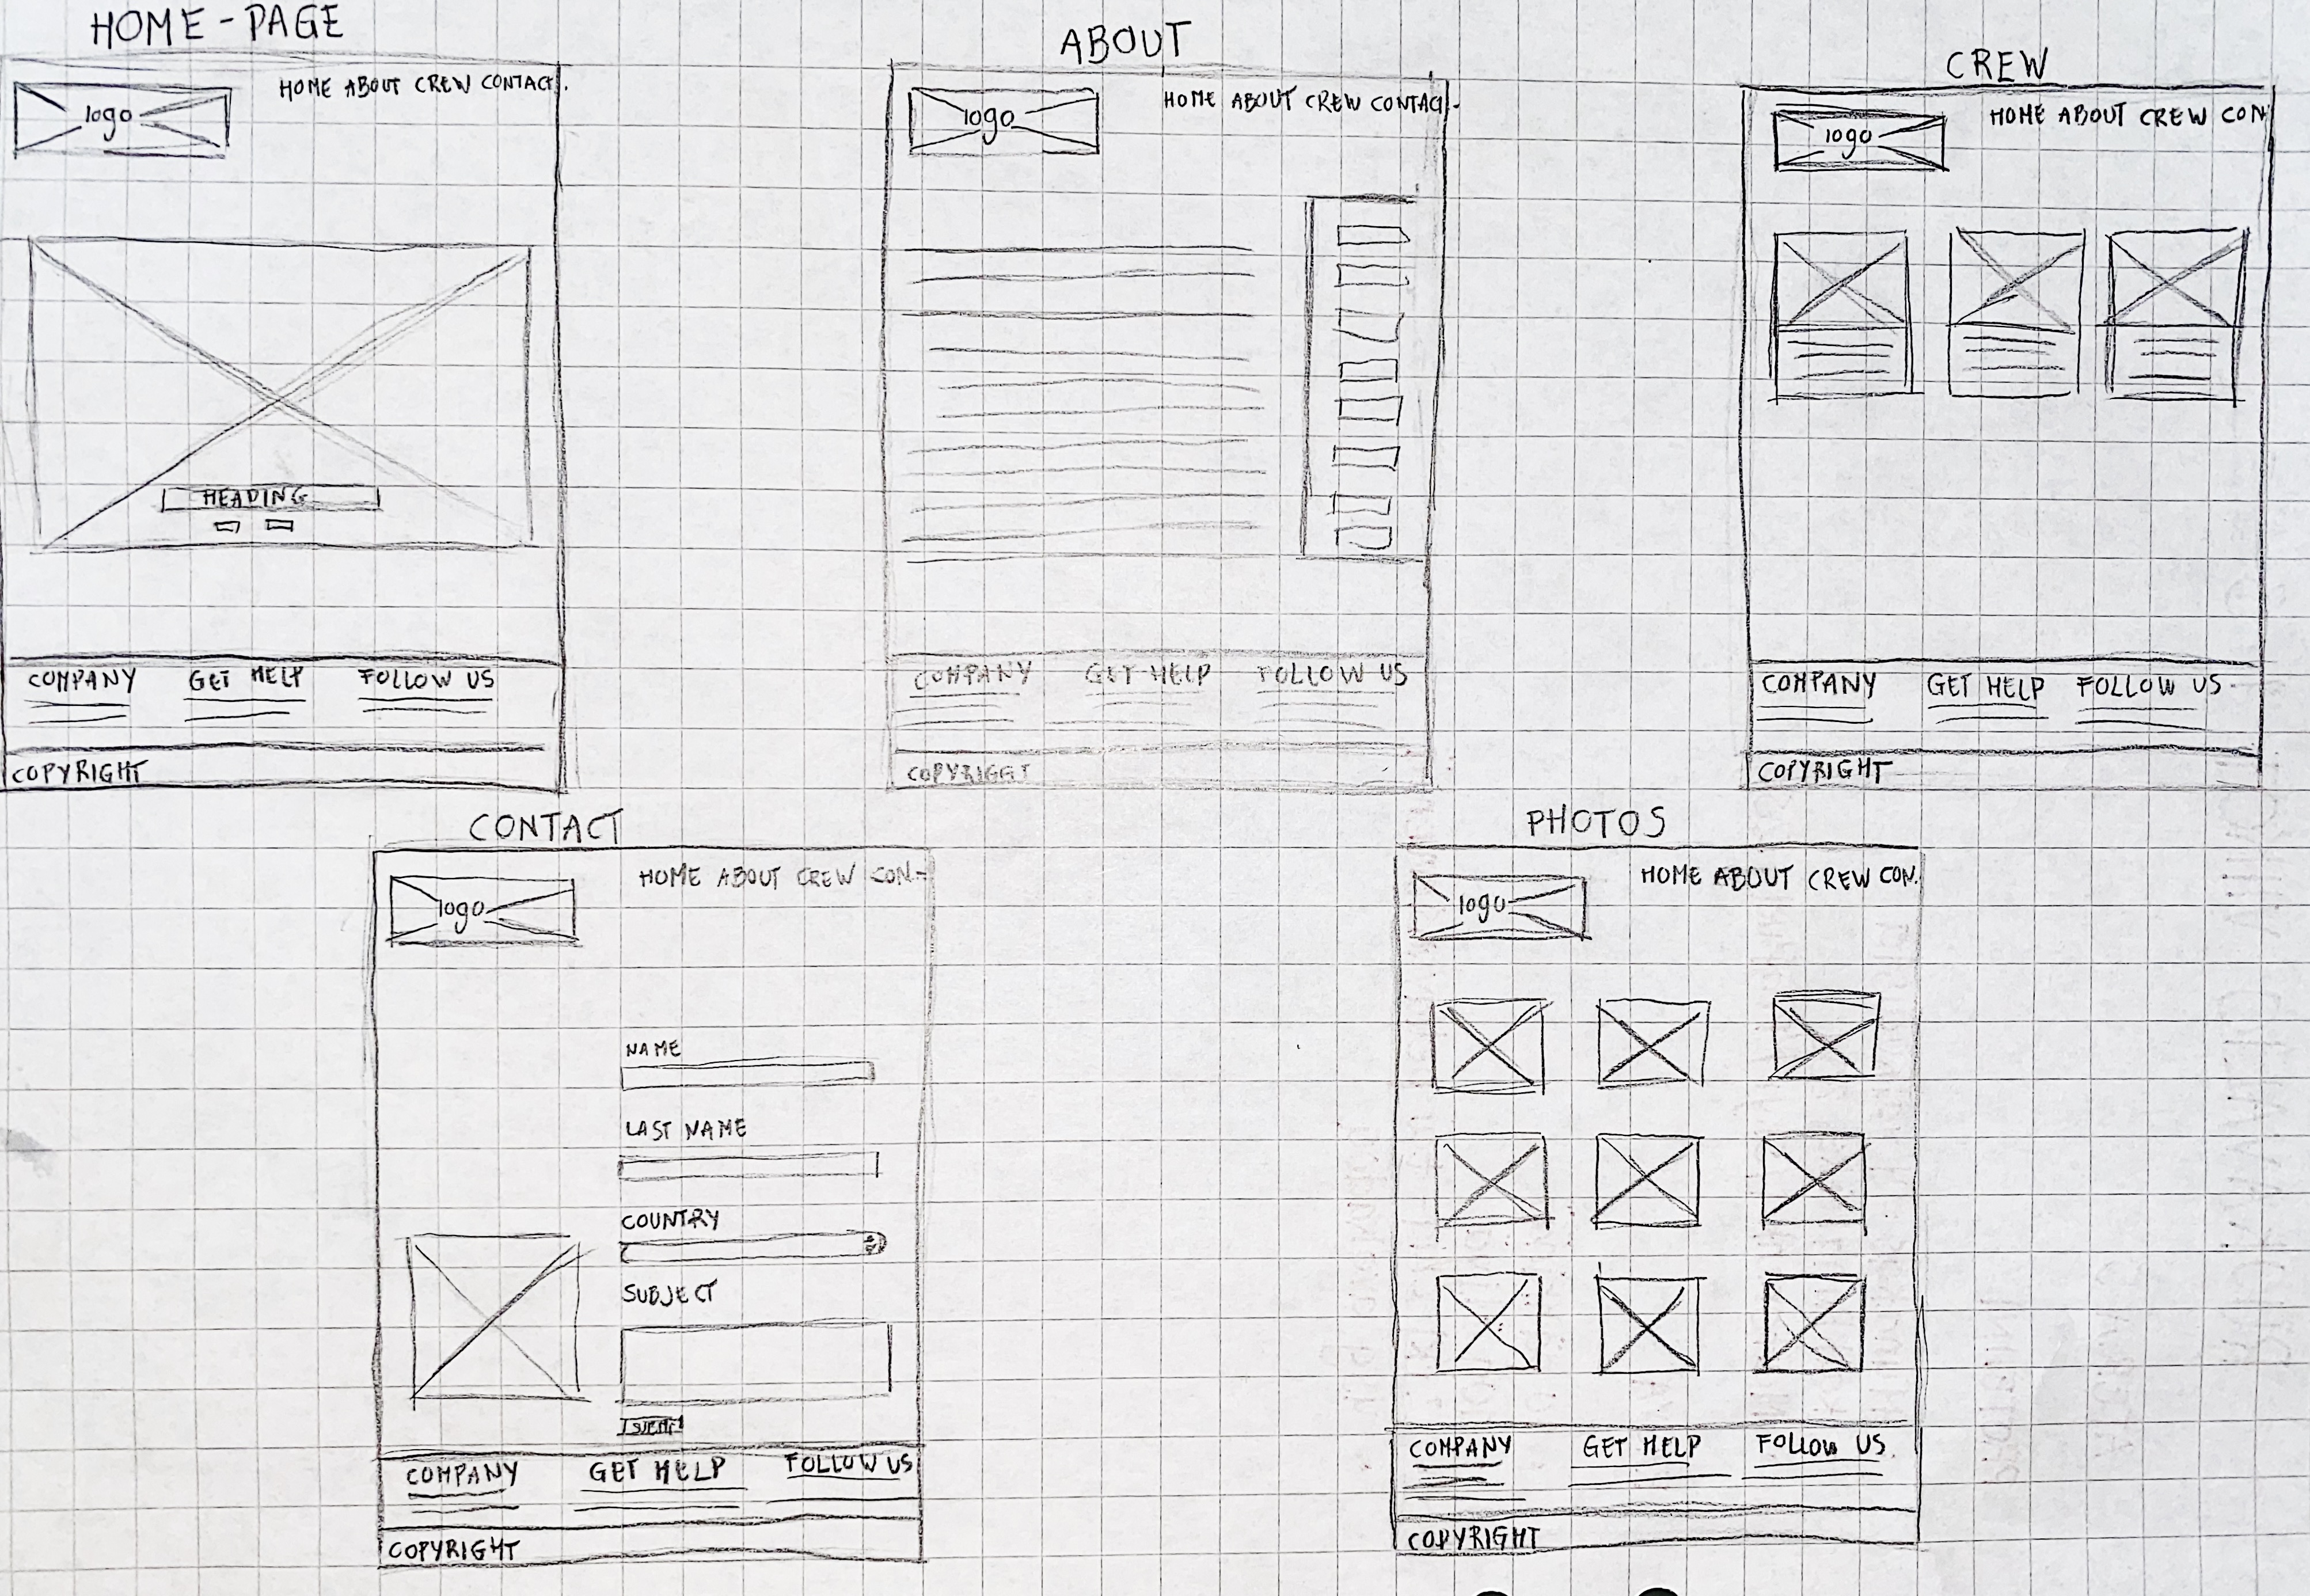 HOME - PAGE
HOME ABOUT CREW CONTACT.
logo
HEADING
COMPANY GET HELP FOLLOW US
COPYRIGHT
ABOUT
HOME ABOUT CREW CONTACT.
logo
COMPANY GET HELP FOLLOW US
COPYRIGGT
CREW
HOME ABOUT CREW CON
logo
COMPANY GET HELP FOLLOW US
COPYRIGHT
CONTACT
HOME ABOUT CREW CON.
logo
NAME
LAST NAME
COUNTRY
SUBJECT
COMPANY GET HELP FOLLOW US
COPYRIGHT
PHOTOS
HOME ABOUT CREW CON.
logo
COMPANY GET HELP FOLLOW US
COPYRIGHT